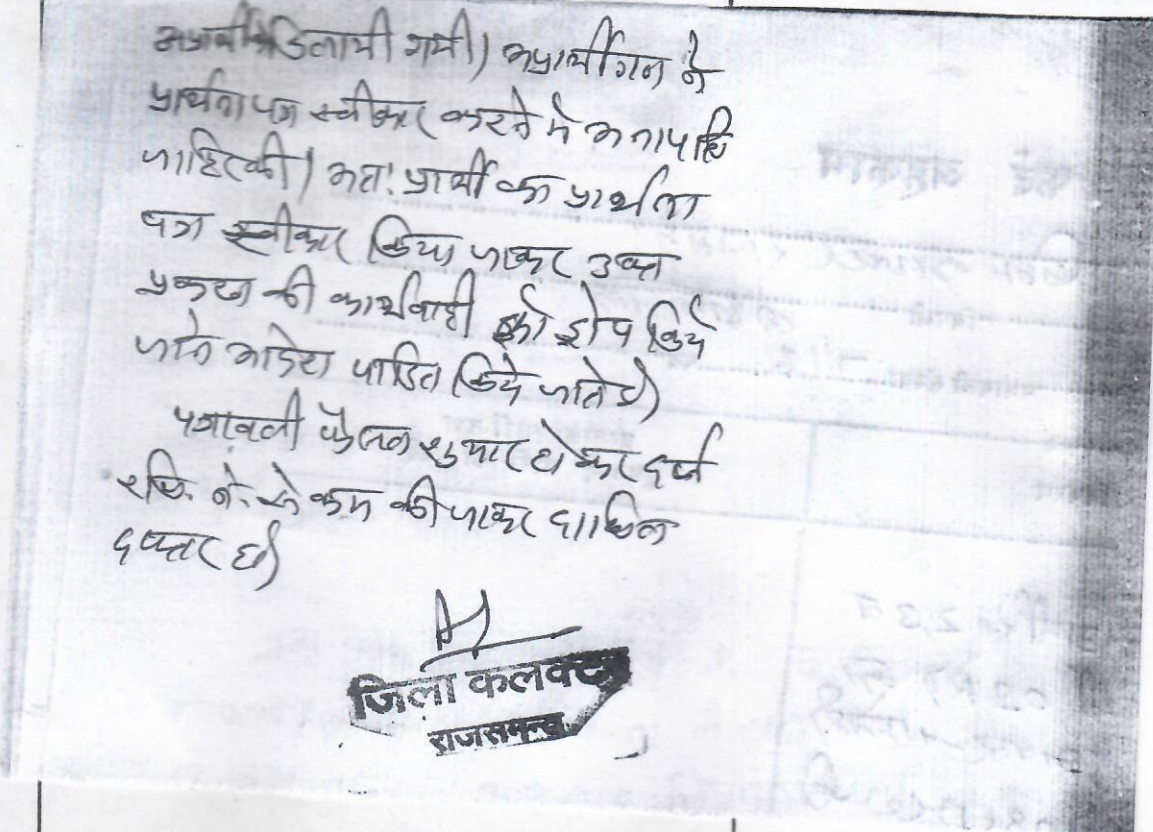 गयी। अप्रार्थीगन ने
प्रार्थना पत्र स्वीकार करने मे अनापत्ति
जाहिर की। अतः प्रार्थी का प्रार्थना
पत्र स्वीकार किया जाकर उक्त
प्रकरण की कार्यवाही को ड्रोप किये
जाने आदेश पारित किये जाते है।
पत्रावली फैसल शुमार होकर दर्ज
रजि. से कम की जाकर दाखिल
दफ्तर हो।
जिला कलक्टर
राजसमन्द